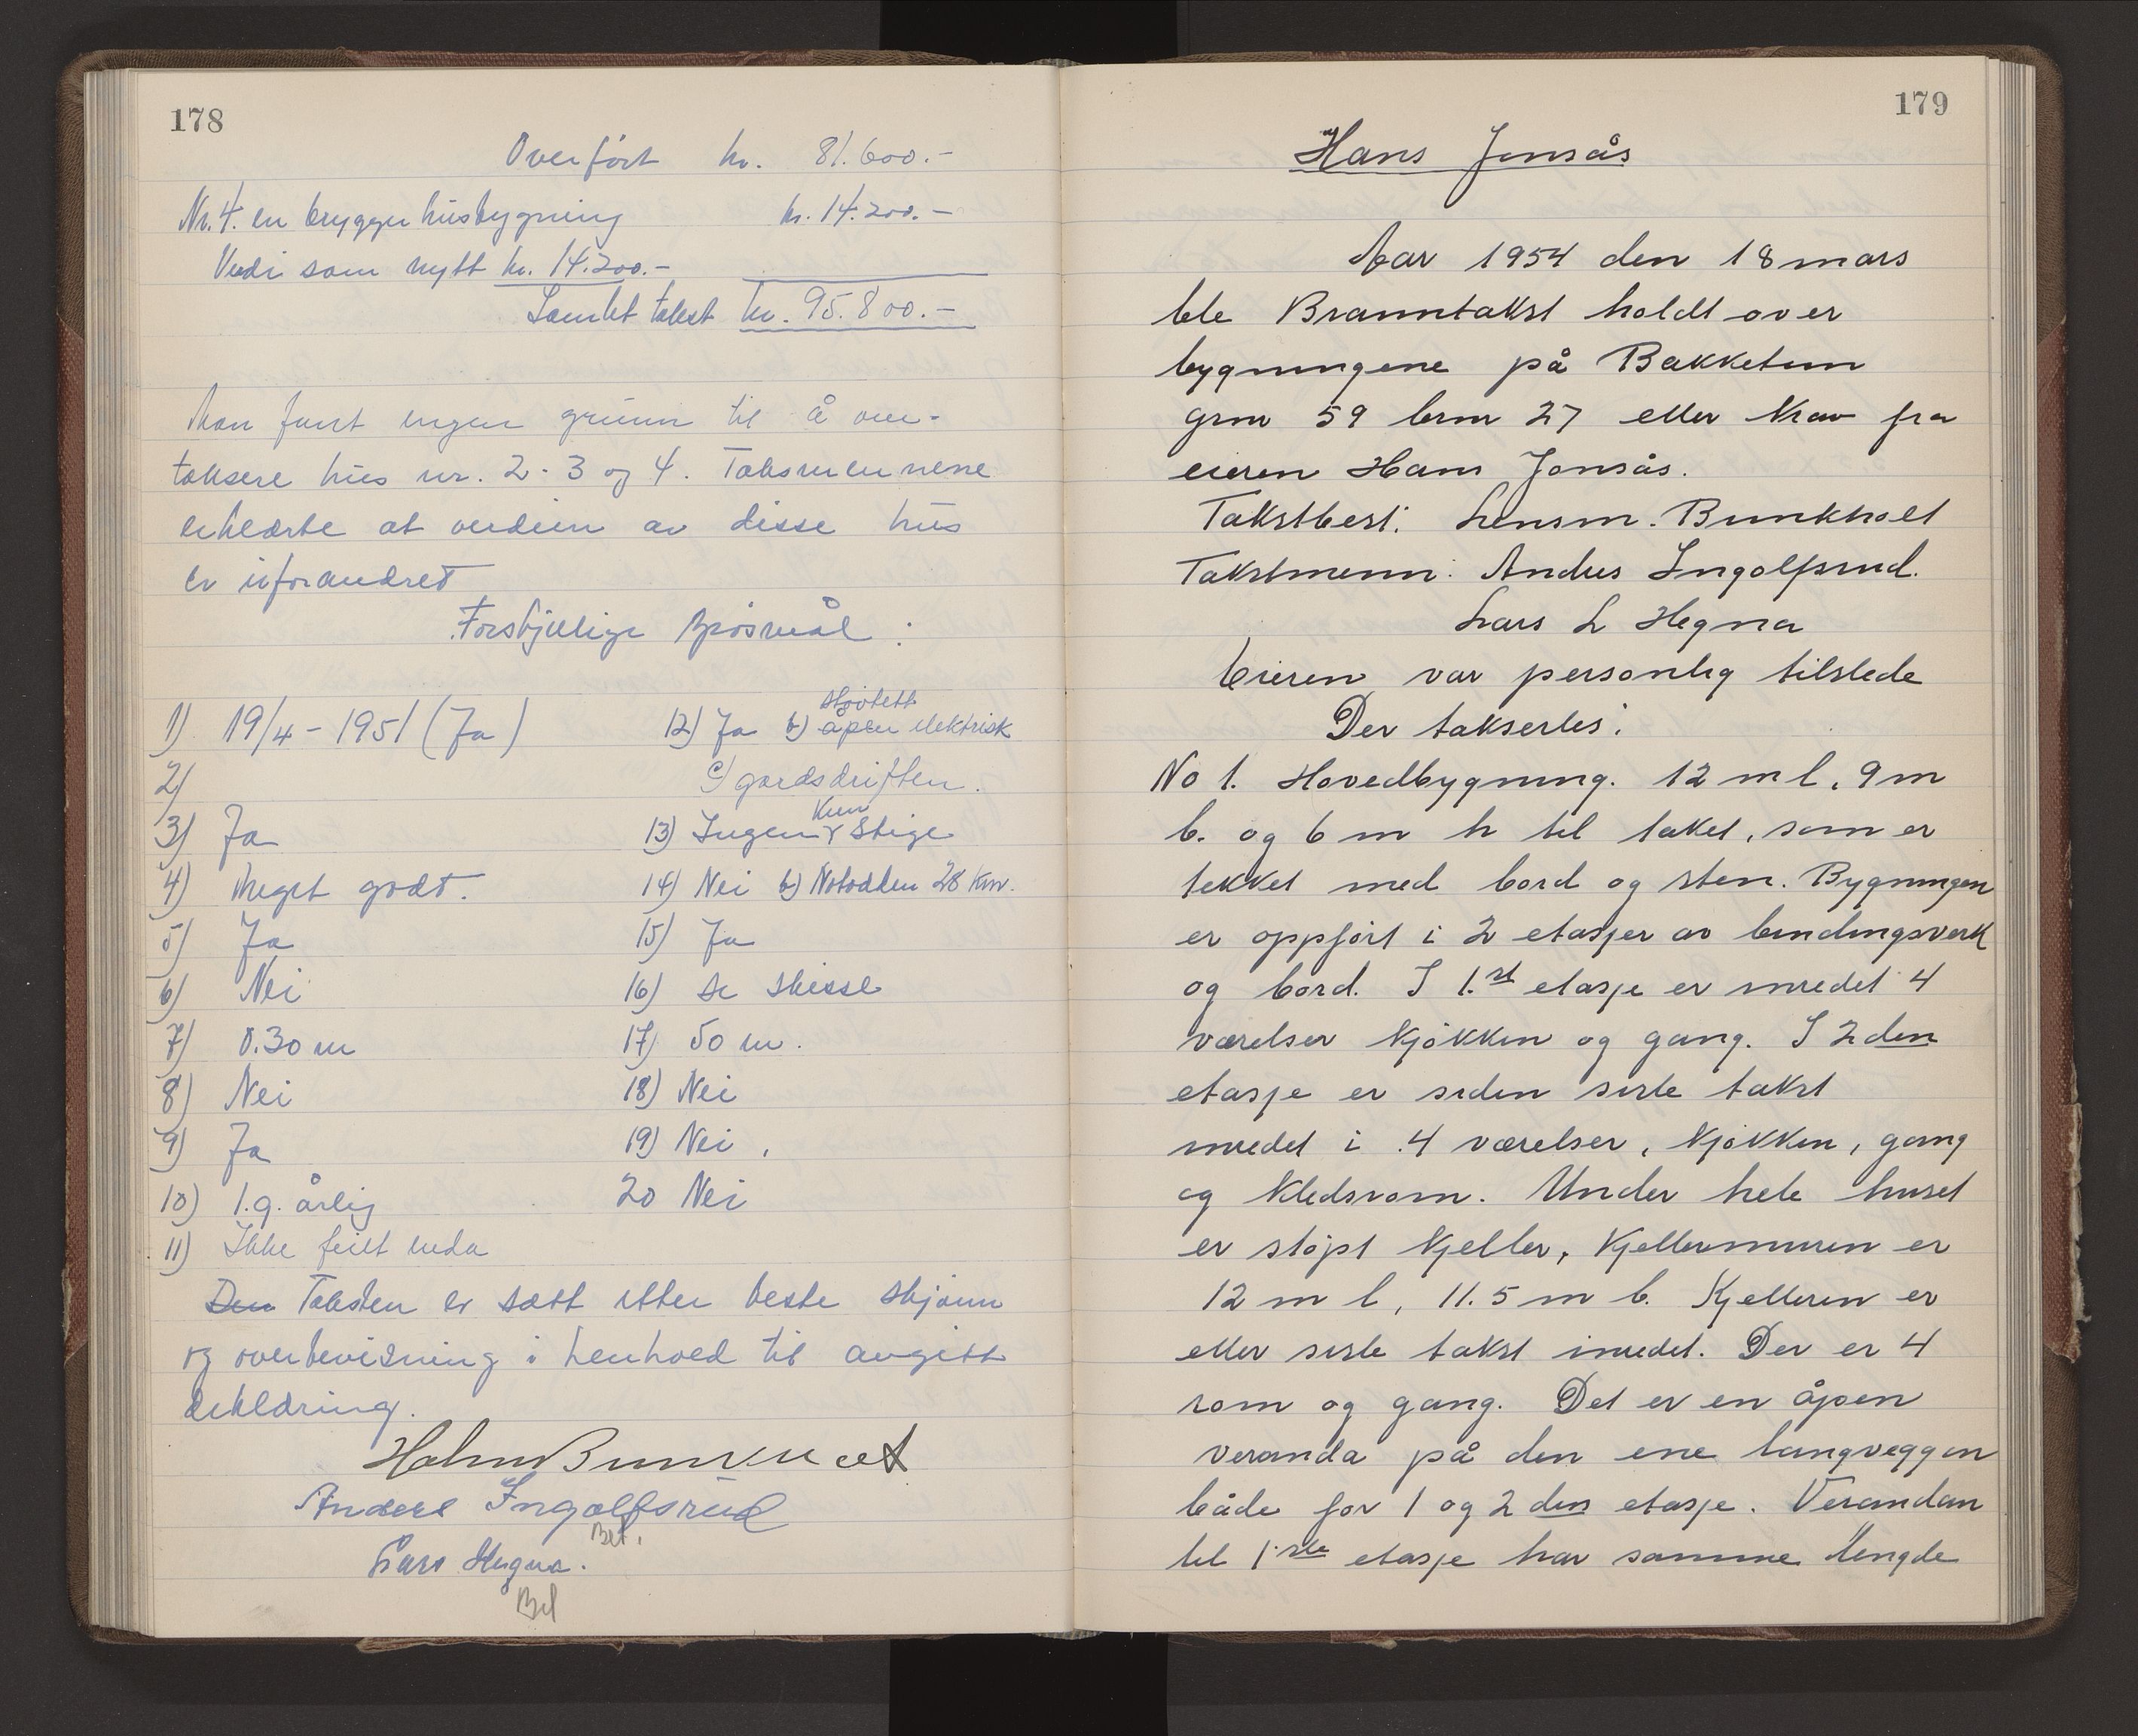 178
Overført kr. 81.600.-
Nr. 4. en bryggerhusbygning kr. 14.200.-
Verdi som nytt kr. 14.200.-
Samlet takst kr. 95.800.-
Man fant ingen grunn til å om-
taksere hus nr. 2-3 og 4. Taksmennene
erklærte at verdien av disse hus
er uforandret
Forskjellige spørsmål :
1) 19/4 - 1951 (Ja)
2)
3) Ja
4) Meget godt.
5) Ja
6) Nei
7) 0.30 m
8) Nei
9) Ja
10) 1.g. årlig
11) Ikke feilt enda
12) Ja b) åpen støvtett elektrisk
c) gardsdriften.
13) Ingen Kun Stige
14) Nei b) Notodden 28 km.
15) Ja
16) Se skisse
17) 50 m.
18) Nei
19) Nei.
20 Nei
Den Taksten er satt etter beste skjønn
og overbevisning i henhold til avgitt
erklæring.
Holm Bunkholt
Anders Ingolfsrud
Bet.
Lars Hegna.
Bet
179
Hans Jonsås
Aar 1954 den 18 mars
ble Branntakst holdt over
bygningene på Bakketun
grnr 59 brnr 27 etter krav fra
eieren Hans Jonsås.
Takstbest: Lensm. Bunkholt
Takstmenn: Anders Ingolfsrud.
Lars L Hegna
Eieren var personlig tilstede
Der taksertes:
No 1. Hovedbygning. 12 m l, 9 m
b. og 6 m h til taket, som er
tekket med bord og sten. Bygningen
er oppført i 2 etasjer av bindingsverk
og bord. I 1.st etasje er inredet 4
værelser kjøkken og gang. I 2den
etasje er siden siste takst
inredet i 4 værelser, kjøkken, gang
og kledsrom. Under hele huset
er støpt kjeller, Kjellermuren er
12 m l, 11.5 m b. Kjelleren er
etter siste takst inredet. Der er 4
rom og gang. Det er en åpen
veranda på den ene langveggen
både for 1 og 2 den etasje. Verandan
til 1.ste etasje har samme lengde